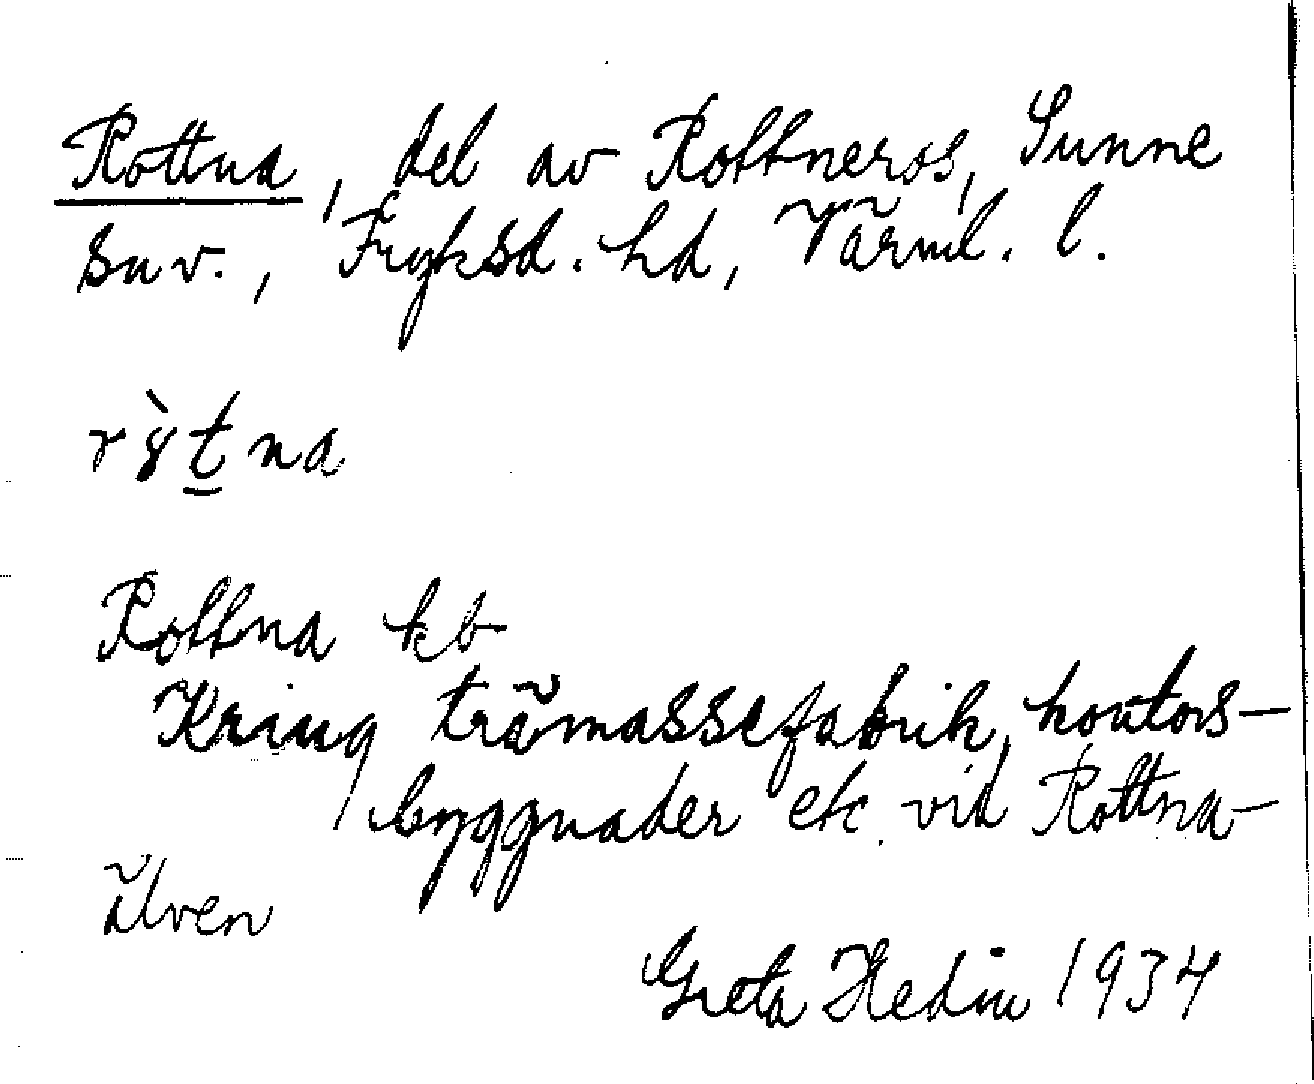 Rottna, del av Rottneros, Sunne
snv., Fryksd. hd, Värml. l.
rꝏ̀t̲na
Rottna kb
Kring trämassefabrik, kontors-
byggnader etc. vid Rottna-
älven
Greta Hedin 1934